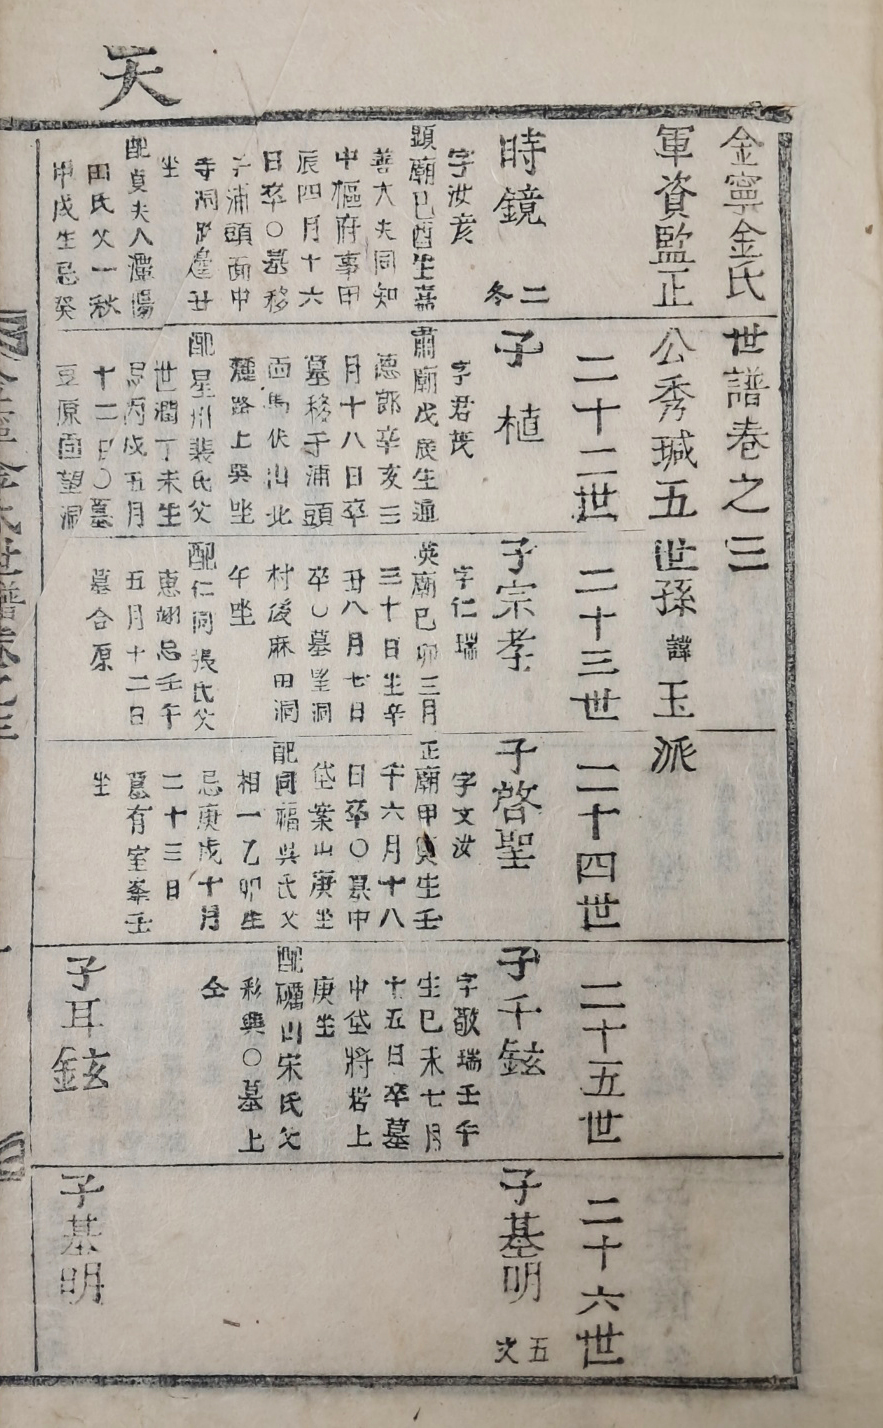 天
金寧金氏世譜卷之三
軍資監正公秀瑊五世孫諱玉派
二十二世
二十三世
二十四世
二十五世
二十六世
時鏡
二
冬
字汝亥
顯廟己酉生嘉
善大夫同知
中樞府事甲
辰四月十六
日卒〇墓移
于浦頭面中
寺洞
坐
配貞夫人潭陽
田氏父一秋
甲戌生忌癸
子植
字君茂
肅廟戊辰生通
德郎辛亥三
月十八日卒
墓移于浦頭
面馬伏山北
麓路上巽坐
配星州裴氏父
世潤丁未生
忌丙戌五月
十二日〇墓
豆原面望洞
子宗孝
字仁瑞
英廟己卯三月
三十日生辛
丑八月七日
卒〇墓望洞
村後麻田洞
午坐
配仁同張氏父
惠翊忌壬午
五月十二日
墓合原
子啓聖
字文汝
正廟甲寅生壬
午六月十八
日卒〇墓中
垈葉山庚坐
配同福吳氏父
相一乙卯生
忌庚戌十月
二十三日
墓有室峯壬
坐
子千鉉
字敬瑞壬午
生己未七月
十五日卒墓
中垈將岩上
庚坐
配礪山宋氏父
彩興〇墓上
仝
子耳鉉
子基明
五
文
子基明